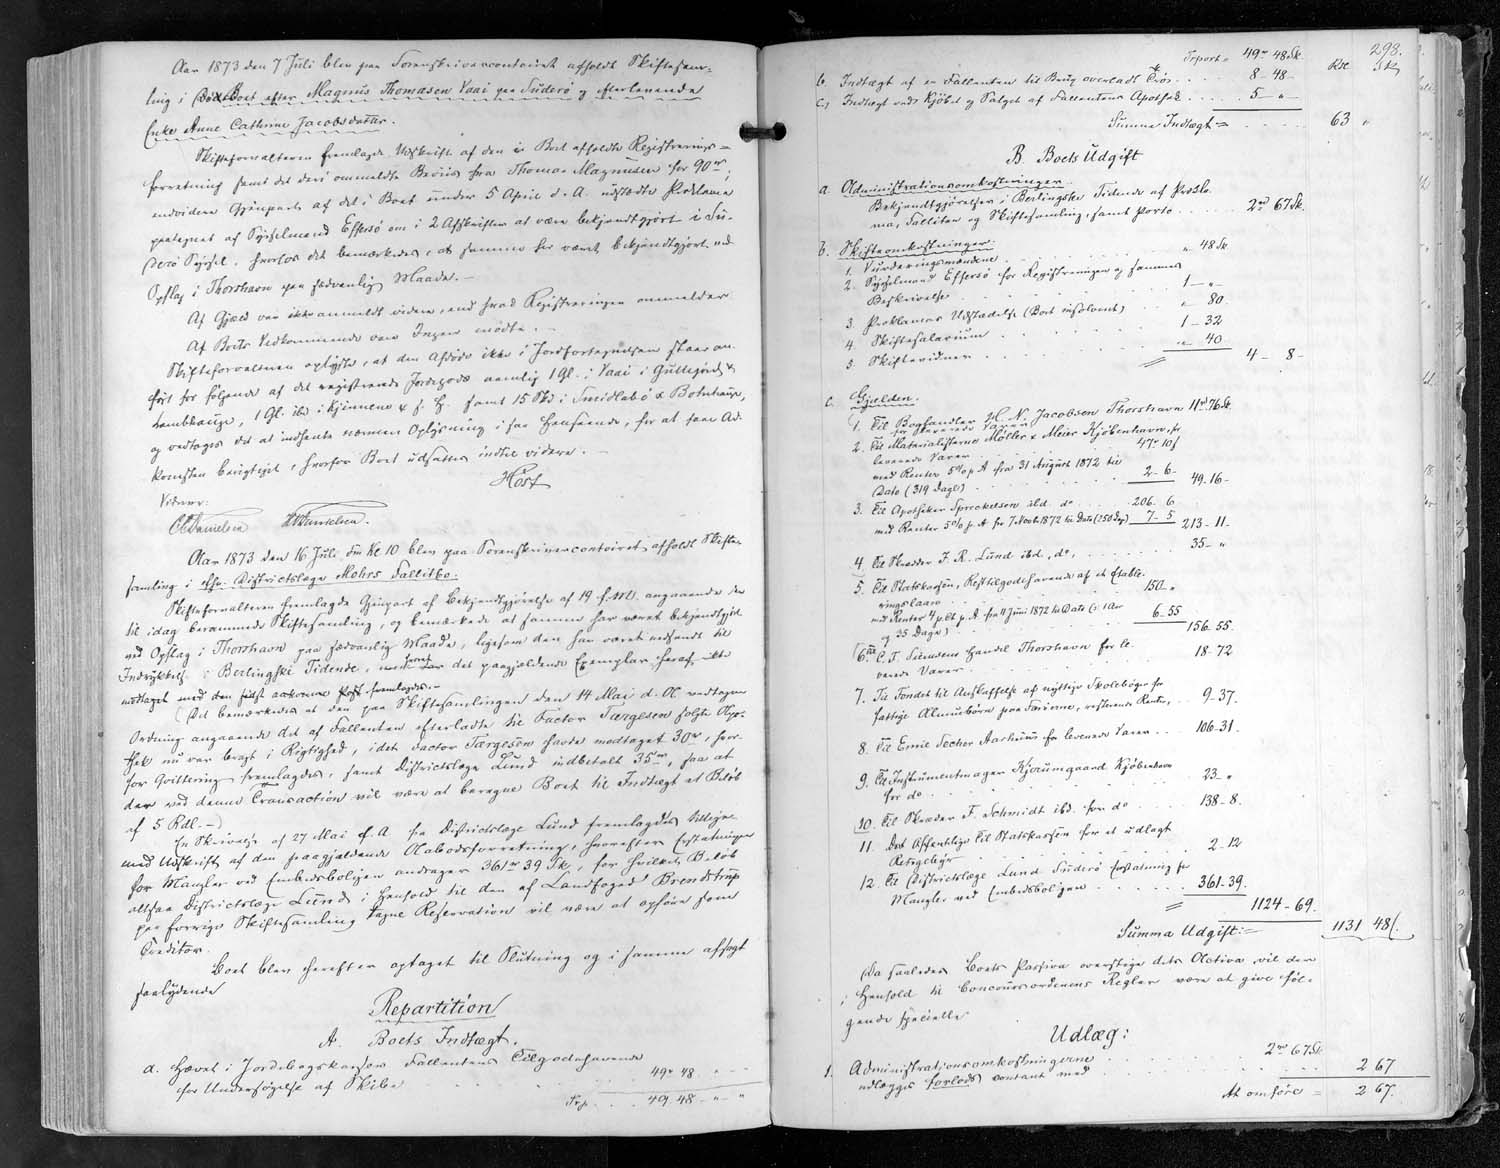 Aar 1873 den 7 Juli blev paa Sorenskrivercontoiret afholdt Skiftesam-
ling i Dødsboet efter Magnus Thomasen Vaai paa Suderø og efterlevende
Enke Anne Cathrine Jacobsdatter.
Skifteforvalteren fremlagde Udskrift af den i Boet afholdte Registrerings-
forretning samt det deri ommeldte Beviis fra Thomas Magnussen for 90 rd;
endvidere Gjenpart af det i Boet under 5 April d. A. udstædte Proklama
paategnet af Sysselmand Effersø om i 2 Afskrifter at være bekjendtgjort i Su-
derø Syssel, hvorfor det bemærkedes, at samme her været bekjendtgjort ved
Opslag i Thorshavn paa sædvanlig Maade. -
Af Gjæld var ikke anmeldt videre, end hvad Registreringen ommelder.
Af Boets Vedkommende var Ingen mødte. -
Skifteforvalteren oplyste, at den Afdøde ikke i Jordfortegnelsen staar an-
ført for følgende af det registrerede Jordegods nemlig 1 Gl. i Vaai i
1 Gl. ibd i Kjinnene & f. H. samt 15 Skd i Smidlabø & Botnhauge,
og vedtoges det at indhente nærmere Oplysning i saa Henseende, for at faae Ad-
komsten berigtiget, hvorfor Boet udsattes indtil videre. -
Høst
Vidner:
Danielsen Danielsen.
Aar 1873 den 16 Juli Fm Kl 10 blev paa Sorenskrivercontoiret afholdt Skifte-
samling i Districtslæge Mohrs Fallitbo.
Skifteforvalteren fremlagde Gjenpart af Bekjendtgjørelse af 19 f. M. angaaende den
til idag berammede Skiftesamling, og bemærkede at samme har været bekjendtgjort
ved Opslag i Thorshavn paa sædvanlig Maade, ligesom den har været indsendt til
Indrykkelse i Berlingske Tidende, det paagjældende Exemplar heraf ikke
modtaget med den sidst ankomne Post fremlagdes. -
Det bemærkedes at den paa Skiftesamlingen den 14 Mai d. A. vedtagne
Ordning angaaende det af Fallenten efterladte til Factor Tærgesen solgte Apo-
thek nu var bragt i Rigtighed, idet Factor Tærgesen havde modtaget 30 rd, hvor-
for Qvittering fremlagdes, samt Districtslæge Lund indbetalt 35 rd, saa at
der ved denne Transaction vil være at beregne Boet til Indtægt et Beløb
af 5 Rdl. -
En Skrivelse af 27 Mai d. A. fra Districtslæge Lund fremlagdes tillige
med Udskrift af den paagjældende Aabodsforretning, hvorefter Erstatningen
for Mangler ved Embedsboligen andrager 361 rd 39 Sk, for hvilket Beløb
altsaa Districtslæge Lund i Henhold til den af Landfoged Brendstrup
paa forrige Skiftesamling tagne Reservation vil være at opføre som
Creditor.
Boet blev herefter optaget til Slutning og i samme afsagt
saalydende
Repartition
A. Boets Indtægt.
a. Hævet i Jordebogskassen Fallentens Tilgodehavende
for Undersøgelse af Skibe . . . 49 rd 48. " "
Trp. . . . 49. 48 - " - "
298.
Trport = 49 rd 48 Sk. Rdl. Sk
b. Indtægt af en Fallenten til Brug overladt . . . 8 - 48 -
c. Indtægt ved Kjøbet og Salget af Fallentens Apothek . . . 5 - "
Summa Indtægt = . . . 63 "
B. Boets Udgift
a Administrationsomkostninger.
Bekjendtgjørelser i Berlingske Tidende af Prokla-
ma, Falliten og Skiftesamling, samt Porto . . . 2 rd 67 Sk.
b. Skifteomkostninger:
1. Vurderingsmændene . . . " 48 Sk.
2. Sysselmand Effersø for Registreringen og sammes
Beskrivelse . . . 1 - " -
3. Proklamas Udstædelse (Boet insolvent) . . . " 80.
4. Skiftesalarium . . . 1 - 32
5. Skiftevidner . . . " 40
4 - 8 -
c. Gjælden.
1. Til Boghandler H. N. Jacobsen Thorshavn
for leverede Varer 11 rd 76 Sk.
2. Til Materialisterne Møller & Meier Kjöbenhavn, for
leverede Varer . . . 47 rd 10 s
med Renter 5% p. A fra 31 August 1872 til
Dato (319 Dage) . . . 2 - 6 - 49. 16 -
3. Til Apotheker Sprockelsen ibd. do . . . 206. 6
med Renter 5% p. A fra 7 Novb. 1872 til Dato (250 Dage) 7 - 5 213 - 11 -
4 Til Skræder F. R. Lund ibd, do, . . . 35 - "
5. Til Statskassen, Resttilgodehavende af et Etable-
ringslaan . . . 150. "
med Renter 4 pCt p. A fra 11 Juni 1872 til Dato (1 Aar
og 35 Dage) . . . 6 - 55 156. 55.
6. Til C. F. Siemsens Handel Thorshavn for le-
verede Varer . . . 18 - 72
7. Til Fondet til Anskaffelse af nyttige Skolebøger for
fattige Almuebørn paa Færøerne, resterende Rente, . . 9 - 37.
8. Til Emil Secher Aarhuus for leverede Varer . . . 106. 31.
9. Til Instrumentmager Kjærumgaard Kjöbenhavn
for do . . . 23 - "
10. Til Skræder F. Schmidt ibd. for do . . . 138 - 8.
11. Det Offentlige til Statskassen for et udlagt
Retsgebyr . . . 2 - 12
12. Til Districtslæge Lund Suderø Erstatning for
Mangler ved Embedsboligen . . . 361. 39.
1124 - 69.
Summa Udgift = 1131 48 s.
Da saaledes Boets Passiva overstige dets Activa vil der
i Henhold til Concoursordenens Regler være at give føl-
gende specielle
Udlæg:
1. Administrationsomkostningerne . . . 2 rd 67 Sk
udlægges forlods contant med . . . 2 67
At omføre = 2 67.